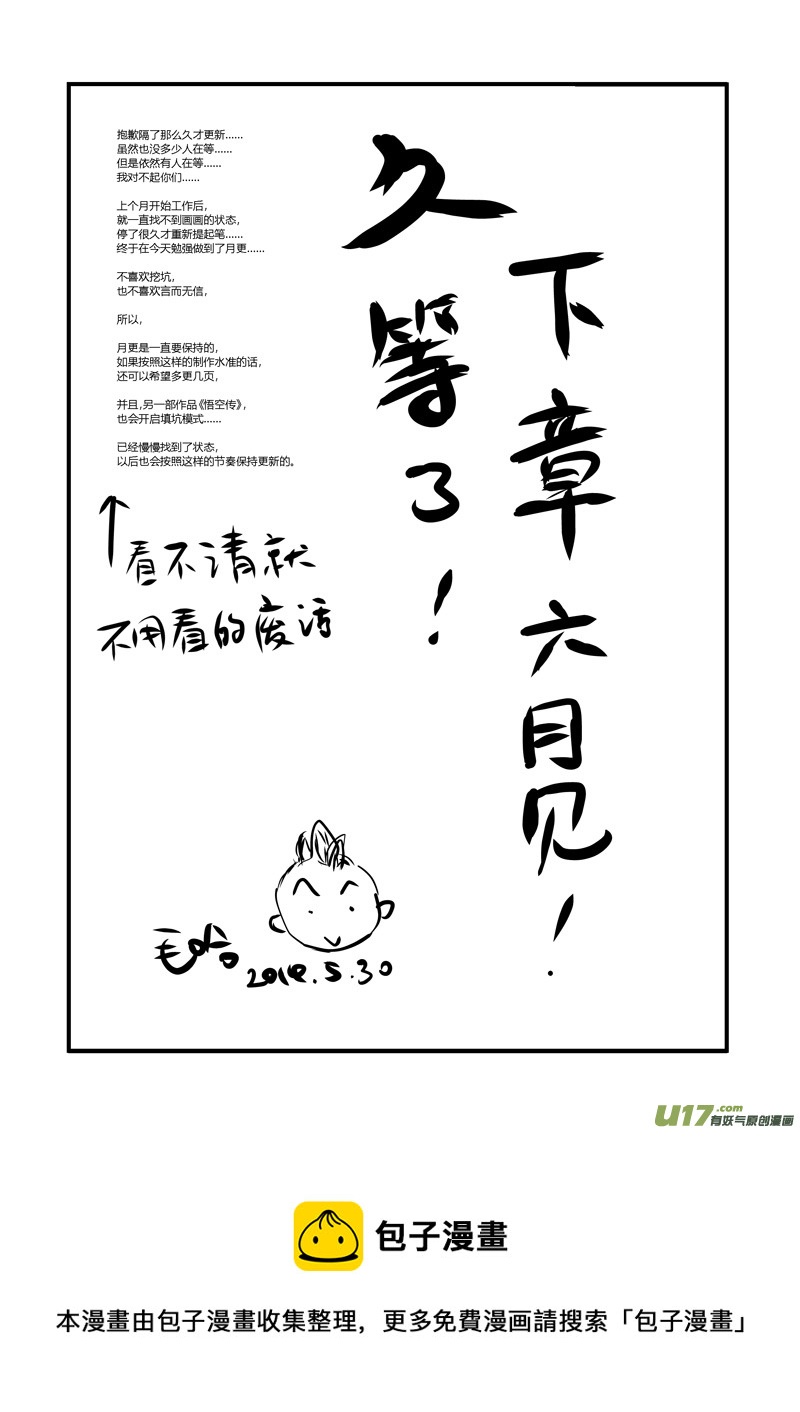 抱歉隔了那么久才更新......
虽然也没多少人在等......
但是依然有人在等......
我对不起你们......
上个月开始工作后，
就一直找不到画画的状态，
停了很久才重新提起笔......
终于在今天勉强做到了月更......
不喜欢挖坑，
也不喜欢言而无信，
所以，
月更是一直要保持的，
如果按照这样的制作水准的话，
还可以希望多更几页，
并且，另一部作品《悟空传》，
也会开启填坑模式......
已经慢慢找到了状态，
以后也会按照这样的节奏保持更新的。
久等了！
下章六月见！
↑看不清就
不用看的废话
毛哈
5.30
U17.com
有妖气原创漫画
包子漫畫
本漫畫由包子漫畫收集整理，更多免費漫画請搜索「包子漫畫」